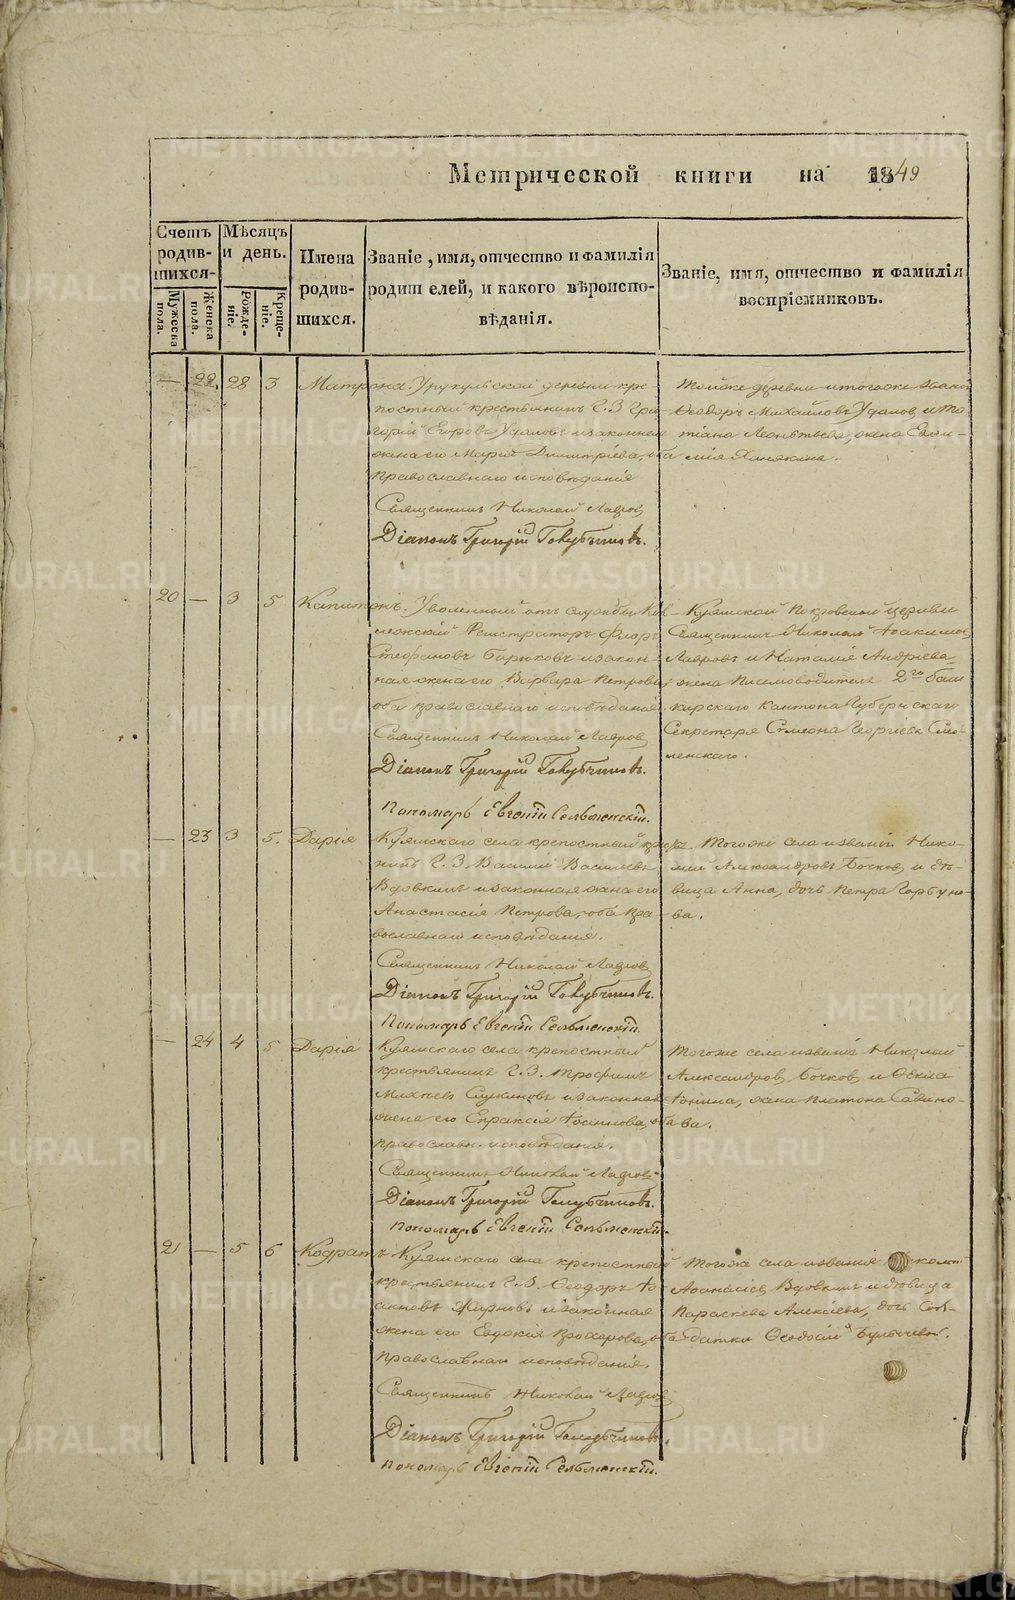 Метрической книги на 1849
Счетъ родив-шихся.
Мѣсяцъ и день.
Имена родив-шихся.
Званіе, имя, отчество и фамилія родителей, и какого вѣроиспо-вѣданія.
Званіе, имя, отчество и фамилія воспріемниковъ.
Мужеска пола.
Женска пола.
Рожде-ніе.
Креще-ніе.
— 22 28 3 Матрона.
деревни кре-
постный крестьянинъ Г. З. Гри-
горій Егоровъ Удаловъ и законная
жена его Марія Димитріева, оба
православнаго исповѣданія
Священникъ Николай Лавров
Діаконъ Григорій Голубчиковъ.
Тойже деревни и тогоже званія
Ѳеодоръ Михайловъ Удалов и Та-
тіана Леонтьева, жена Евѳи-
мія
20 — 3 5 Капитонъ.
Уволенный отъ службы Кол-
лежскій Регистраторъ Флоръ
Стефановъ Бирюковъ и закон-
ная жена его Варвара Петрова,
оба православнаго исповѣданія
Священникъ Николай Лавров
Діаконъ Григорій Голубчиковъ.
Пономарь Евгеній Сельменскій.
Куяшской Покровской церкви
Священникъ Николай Іоакимов
Лавровъ и Наталія Андреева
жена Письмоводителя 2го Баш
кирскаго Кантона Губернскаго
Секретаря Симеона Георгіева Смо-
ленскаго.
— 23 3 5. Дарія
Куяшскаго села крепостный крестья-
нинъ Г. З. Василій Васильевъ
Вдовкинъ и законная жена его
Анастасія Петрова, оба пра-
вославнаго исповѣданія.
Священникъ Николай Лавров
Діаконъ Григорій Голубчиковъ.
Пономарь Евгеній Сельменскій.
Тогоже села и званія Нико-
лай Александровъ Бочков и дѣ-
вица Анна, дочь Петра Горбуно-
ва.
— 24 4 5 Дарія
Куяшскаго села крепостный
крестьянинъ Г. З. Трофимъ
и законная
жена его Епраксія Іоаннова, оба
православн. исповѣданія.
Священникъ Николай Лавров
Діаконъ Григорій Голубчиковъ.
Пономарь Евгеній Сельменскій.
Тогоже села и званія Николай
Александров Бочков и Ѳекла
жена Платона Савино-
ва.
21 — 5 6 Кодратъ
Куяшскаго села крепостный
крестьянинъ Г. З. Ѳеодоръ Іо
Жирновъ и законная
жена его Евдокія Прохорова, оба
православнаго исповѣданія.
Священникъ Николай Лавров
Діаконъ Григорій Голубчиковъ.
Пономарь Евгеній Сельменскій.
Тогоже села и званія Николай
Аѳанасіев Вдовкинъ и дѣвица
Параскева Алексіева, дочь Сол-
датки Ѳеодосіи Булычевой.
METRIKI.GASO-URAL.RU